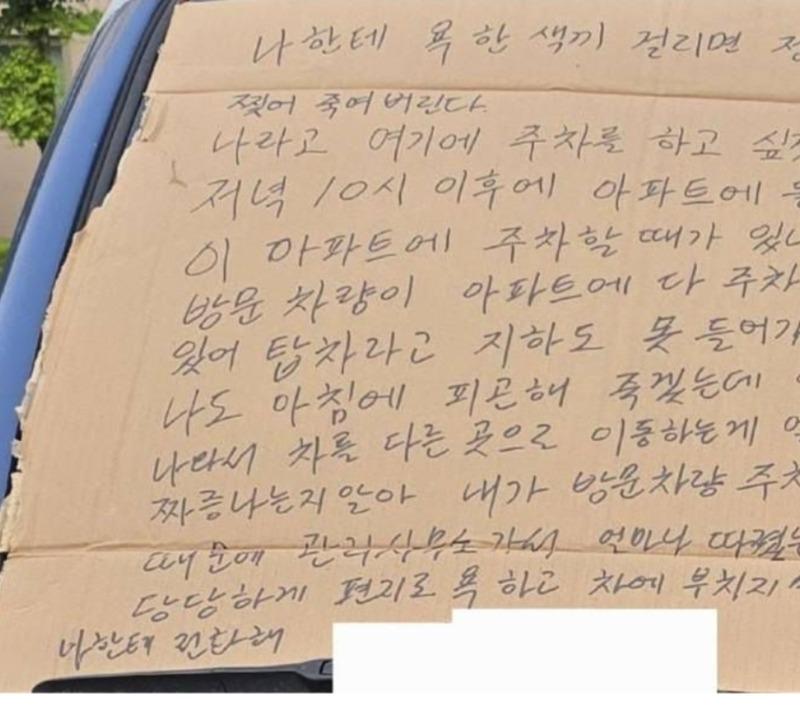 나한테 욕 한 색끼 걸리면
찢어 죽여 버린다.
나라고 여기에 주차를 하고
저녁 10시 이후에 아파트에
이 아파트에 주차할 때가
방문 차량이 아파트에 다 주차
있어 탑차라고 지하도 못 들어가
나도 아침에 피곤해 죽겠는데
나와서 차를 다른 곳으로 이동하는게
짜증나는지 알아 내가 방문차량 주차
때문에 관리사무소 가서 얼마나
당당하게 편지로 욕 하고 차에 부치지
나한테 전화해